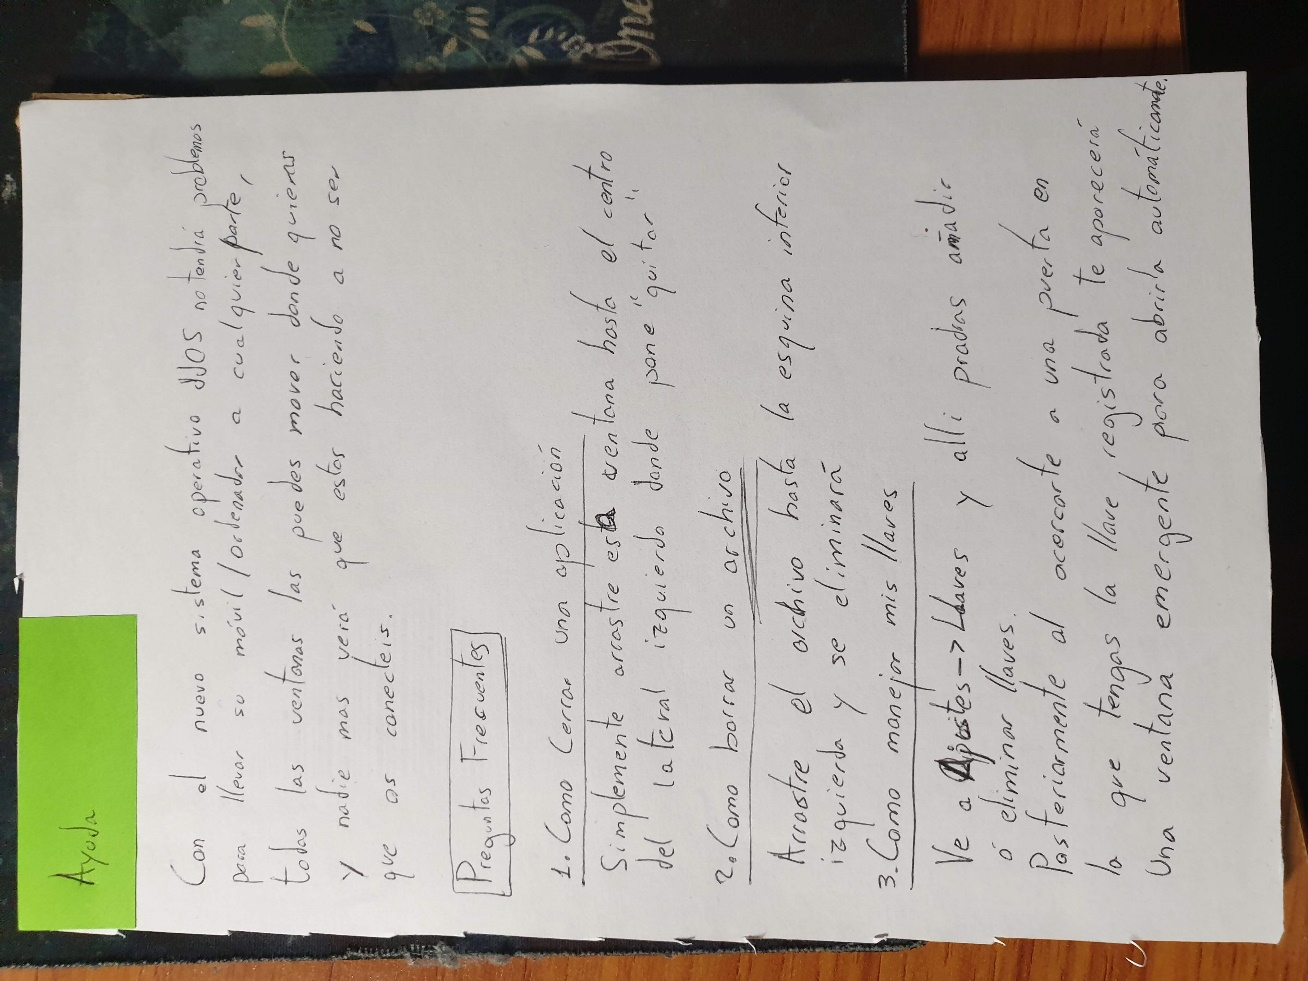 Ayuda
Con el nuevo sistema operativo JJOS no tendrá problemas
para llevar su móvil/ordenador a cualquier parte,
todas las ventanas las puedes mover donde quieras
y nadie mas verá que estas haciendo a no ser
que os conecteis.
Preguntas Frecuentes
1. Como Cerrar una aplicación
Simplemente arrastre esta ventana hasta el centro
del lateral izquierdo donde pone "quitar"
2. Como borrar un archivo
Arrastre el archivo hasta la esquina inferior
izquierda y se eliminará
3. Como manejar mis llaves
Ve a Ajustes -> Llaves y alli prodras añadir
ó eliminar llaves.
Posteriormente al acercarte a una puerta en
la que tengas la llave registrada te aparecerá
Una ventana emergente para abrirla automáticamente.